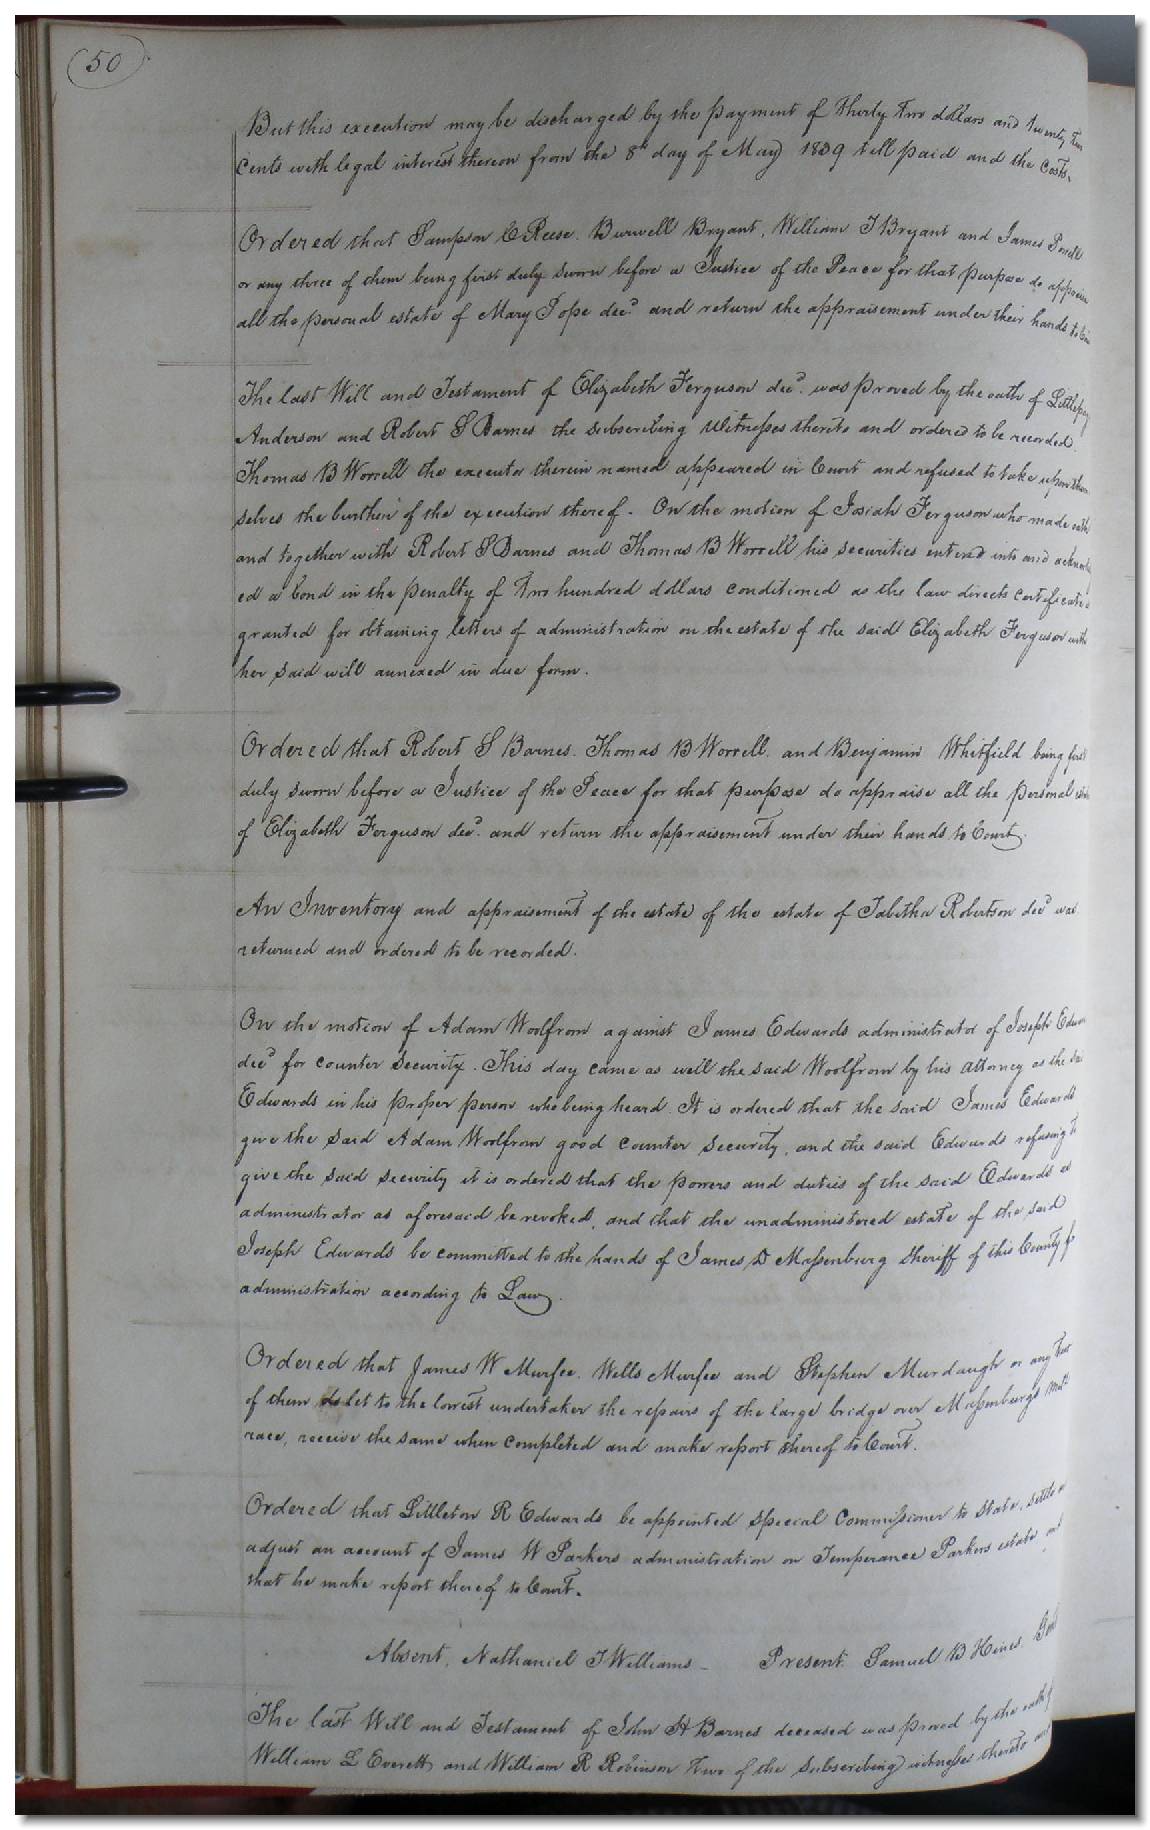 50
But this execution may be discharged by the payment of thirty two dollars and twenty two
cents with legal interest thereon from the 8th day of May 1839 till paid and the costs.
Ordered that Sampson C Reese. Burwell Bryant, William T Bryant and James
or any three of them being first duly sworn before a Justice of the Peace for that purpose do appraise
all the personal estate of Mary Pope decd and return the appraisement under their hands to
The last Will and Testament of Elizabeth Ferguson decd. was proved by the oath of
Anderson and Robert S Barnes the subscribing Witnesses thereto and ordered to be recorded.
Thomas B Worrell the executor therein named appeared in Court and refused to take upon
selves the burthen of the execution thereof. On the motion of Josiah Ferguson who made oath
and together with Robert S Barnes and Thomas B Worrell his securities entered into and
ed a bond in the penalty of two hundred dollars conditioned as the law directs certificate is
granted for obtaining letters of administration on the estate of the said Elizabeth Ferguson with
her said will annexed in due form.
Ordered that Robert S Barnes. Thomas B Worrell. and Benjamin Whitfield being first
duly sworn before a Justice of the Peace for that purpose do appraise all the personal
of Elizabeth Ferguson decd. and return the appraisement under their hands to Court.
An Inventory and appraisement of the estate of the estate of Tabitha Robertson decd was
returned and ordered to be recorded.
On the motion of Adam Woolfrom against James Edwards administrator of Joseph
decd for counter security. This day came as well the said Woolfrom by his attorney as the
Edwards in his proper person who being heard It is ordered that the said James Edwards
give the said Adam Woolfrom good counter security, and the said Edwards refusing to
give the said security it is ordered that the powers and duties of the said Edwards as
administrator as aforesaid be revoked, and that the unadministered estate of the said
Joseph Edwards be committed to the hands of James D Massenburg Sheriff of this County for
administration according to Law.
Ordered that James W Murfee. Wells Murfee and Stephen Murdaugh or any two
of them do let to the lowest undertaker the repairs of the large bridge over Massenburgs Mill
race, receive the same when completed and make report thereof to Court.
Ordered that Littleton R Edwards be appointed special Commissioner to state, settle
adjust an account of James W Parkers administration on Temperance Parkers estate and
that he make report thereof to Court.
Absent, Nathaniel T Williams – Present. Samuel B Hines.
The last Will and Testament of John H Barnes deceased was proved by the oath of
William L Everett, and William R Robinson two of the subscribing witnesses thereto and